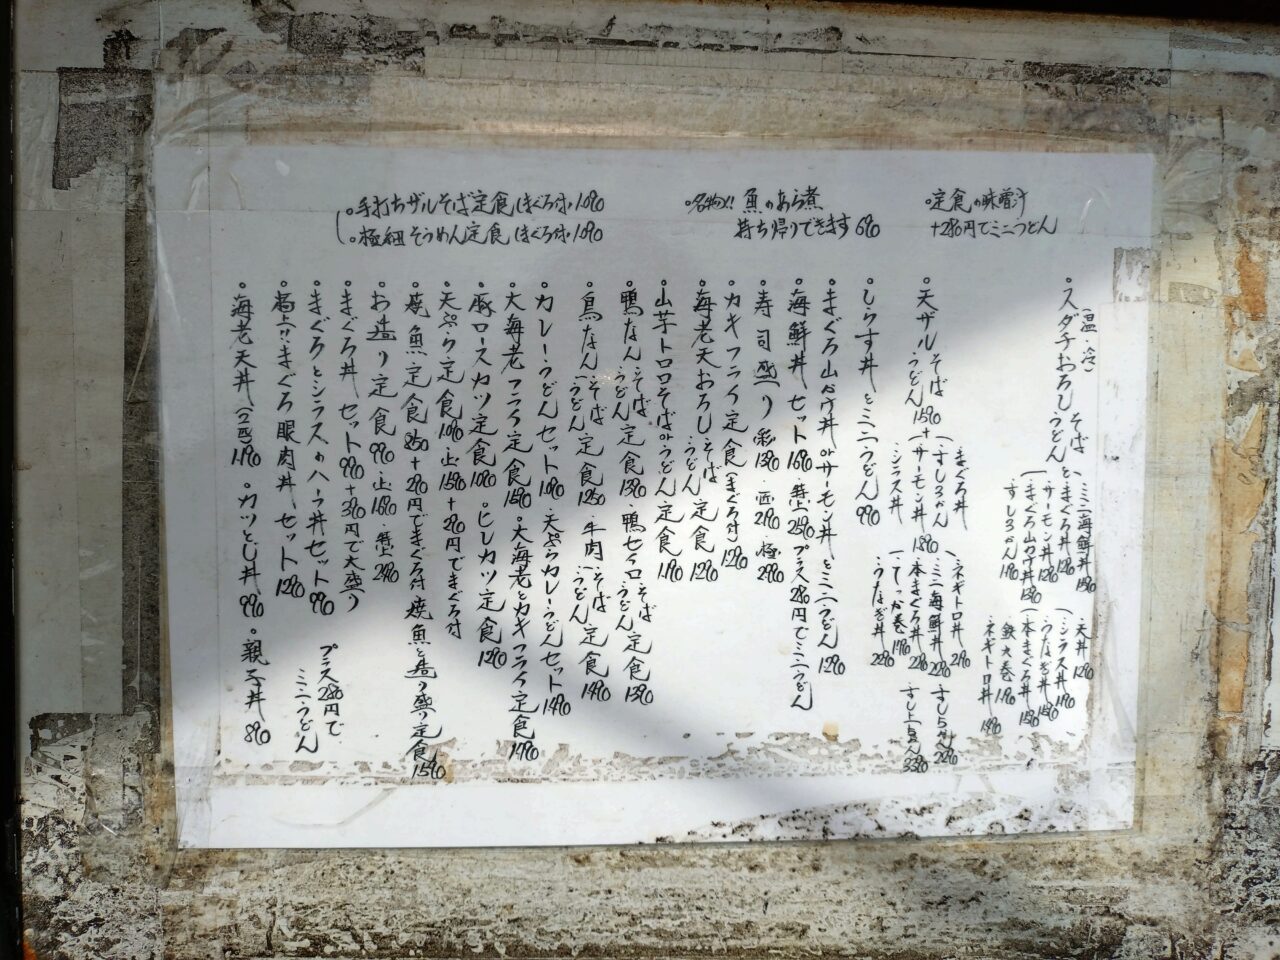 ・手打ちザルそば定食(まぐろ付)・1090
・極細そうめん定食(まぐろ付)・1090
・名物!! 魚のあら煮
持ち帰りできます 690
・定食の味噌汁
+290円でミニうどん
(温・冷)
・スダチおろしそば うどん と
・まぐろ丼 1290
・サーモン丼 1290
・まぐろ山かけ丼 1390
・すし3かん 1190
・ミニ海鮮丼 1590
・天丼 1290
・シラス丼 1190
・うなぎ丼 1590
・本まぐろ丼 1590
鉄火巻 1190
・ネギトロ丼 1490
・天ザルそば うどん 1590 +
・まぐろ丼
・すし3かん
・サーモン丼 1890
・シラス丼
・ネギトロ丼 2190
・ミニ海鮮丼 2290
・本まぐろ丼 2290
・てっか巻 1990
・うなぎ丼 2290
すし5かん 2290
すし上5かん 3390
・しらす丼とミニうどん 990
・まぐろ山かけ丼 or サーモン丼とミニうどん 1290
・海鮮丼セット 1690・特上 2590 プラス290円でミニうどん
・寿司盛り(彩 1390・匠 2190・極 2990
・カキフライ定食(まぐろ付) 1290
・海老天おろしそば うどん 定食 1290
・山芋トロロそば or うどん定食 1190
・鴨なんそば うどん 定食 1390・鴨セイロそば うどん 定食 1390
・鳥なんそば うどん 定食 1250 牛肉そば うどん 定食 1490
・カレーうどんセット 1090・天ぷらカレーうどんセット 1490
・大海老フライ定食 1590・大海老とカキフライ定食 1490
・豚ロースカツ定食 1090・ヒレカツ定食 1290
・天ぷら定食 1090・上 1590 +290円でまぐろ付
・焼魚定食 850 +290円でまぐろ付 焼魚と造り盛り定食 1590
・お造り定食 990・上 1690・特上 2490
・まぐろ丼セット 990 +390円で大盛り
・まぐろとシラスのハーフ丼セット 990
プラス290円でミニうどん
・極上!!まぐろ眼肉丼セット 1290
・海老天丼(2匹) 1190・カツとじ丼 990・親子丼 890